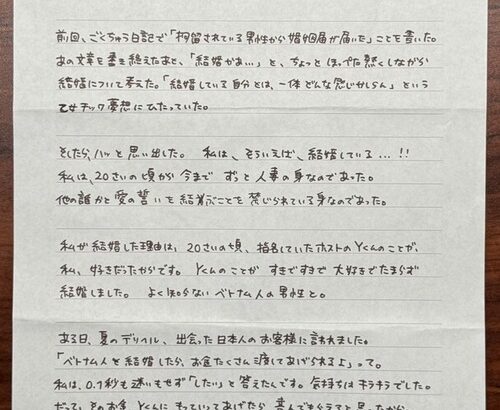 前回、ごくちゅう日記で「拘留されている男性から婚姻届が届いた」ことを書いた。
あの文章を書き終えたあと、「結婚かぁ…」と、ちょっとほっぺた熱くしながら
結婚について考えた。「結婚している自分とは、一体どんな感じかしらん」という
乙女チック妄想にひたっていた。
そしたら、ハッと思い出した。私は、そういえば、結婚している...!!
私は、20さいの頃から今までずっと人妻の身なのであった。
他の誰かと愛の誓いを結ぶことを禁じられている身なのであった。
私が結婚した理由は、20さいの頃、指名していたホストのYくんのことが、
私、好きだったからです。Yくんのことがすきですきで大好きでたまらず
結婚しました。よく知らないベトナム人の男性と。
ある日、夏のデリヘル、出会った日本人のお客様に言われました。
「ベトナム人と結婚したら、お金たくさん渡してあげられるよ」って。
私は、0.1秒も迷いもせず「したい」と答えたんです。気持ちはキラキラでした。
だって、そのお金、Yくんにもっていってあげたら、喜んでもらえると思ったから